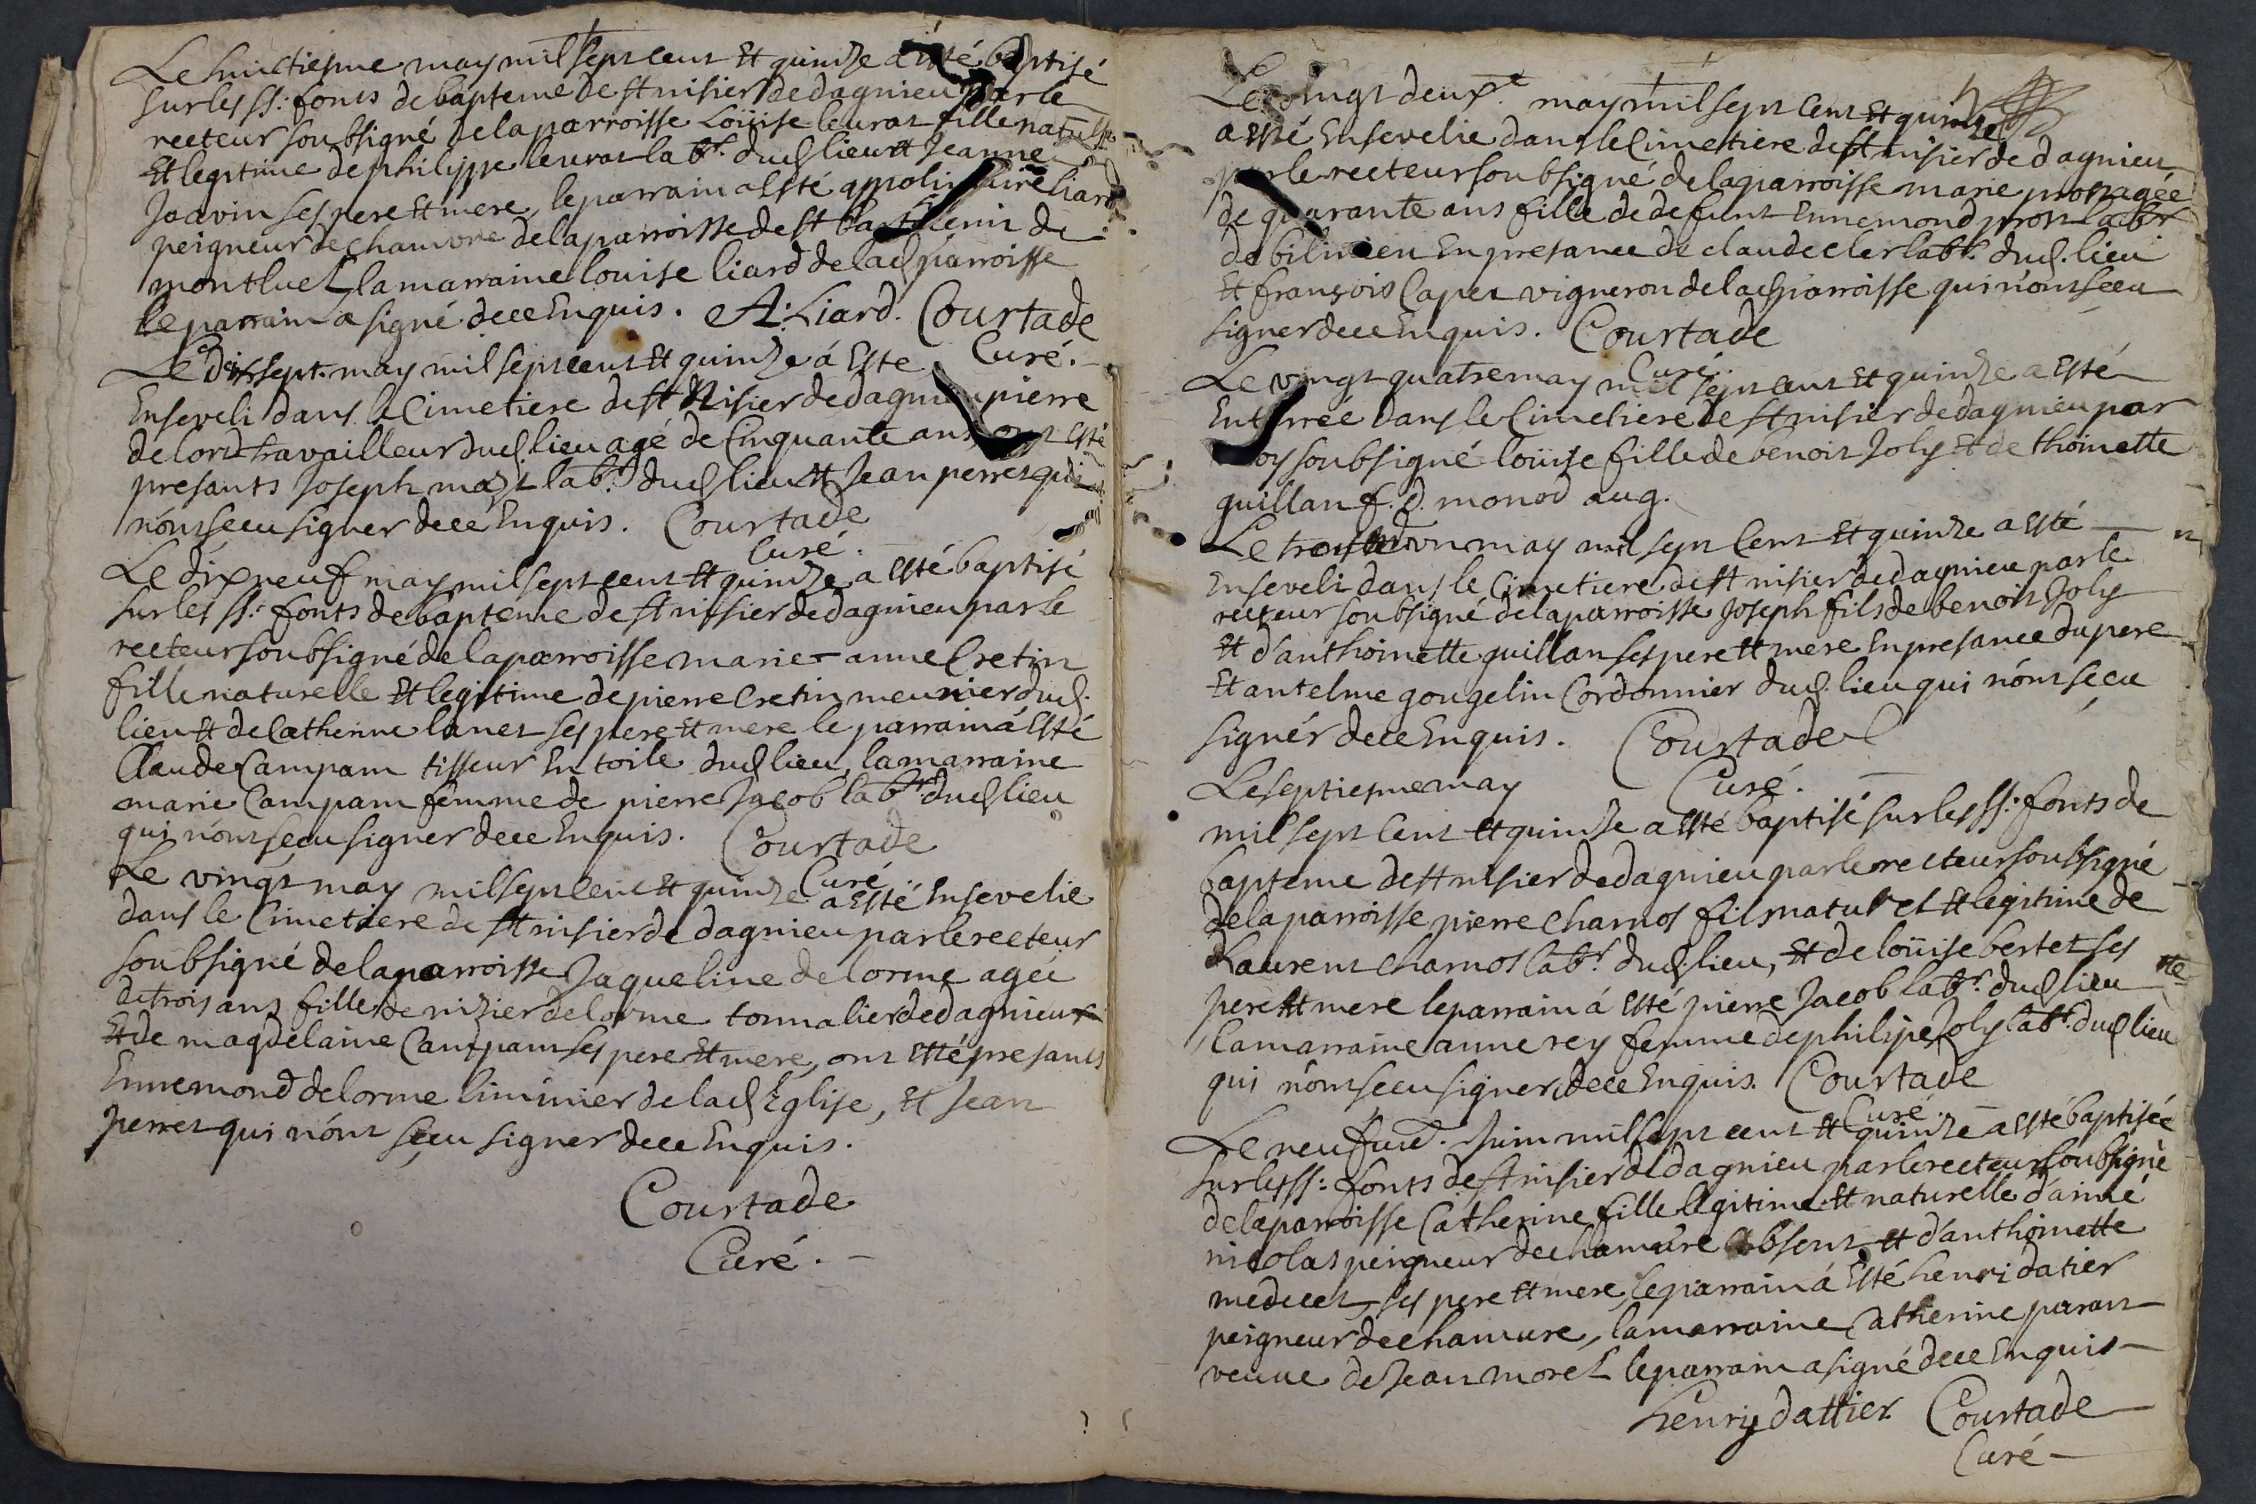 Le huictiesme may mil sept cent et quinze a esté baptisé
sur les ss: fonts de bapteme de st nisier de dagnieu par le
recteur soubsigné de la parroisse Loüise leurat fille naturelle
Et legitime de philippe leurat labr. dud lieu et Jeanne
Janin ses pere et mere, le parrain a esté appolinaire liard
peigneur de chanvre de la parroisse de st barthlemi de
montluel la marraine louise liard de lad parroisse
le parrain a signé de ce Enquis. A: Liard. Courtade
Curé.
Le dixsept. may mil sept cent et quinze á Este
Enseveli dans le Cimetiere de st Nisier de dagnieu pierre
delorme travailleur dud lieu agé de Cinquante ans ont esté
presants Joseph labr. dud lieu et Jean perret qui
n'ont sceu signer de ce Enquis. Courtade
Curé.
Le dix neuf may mil sept cent et quinze a esté baptisé
sur les ss: fonts de bapteme de st nissier de dagnieu par le
recteur soubsigné de la parroisse marie-anne Cretin
fille naturelle et legitime de pierre Cretin meunier dud.
lieu et de Catherine lanet ses pere et mere le parrain á Esté
Claude Campam tisseur En toile dud lieu, la marraine
marie Campam femme de pierre Jacob labr. dud lieu
qui n'ont sceu signer de ce Enquis. Courtade
Curé
Le vingt may mil sept cent et quinze a esté Ensevelie
dans le Cimetiere de st nisier de dagnieu par le recteur
soubsigné de la parroisse Jaqueline delorme agée
de trois ans fille de nizier delorme tonnalier de dagnieu
Et de magdelaine Campam ses pere et mere, ont esté presants
Ennemond delorme liminier de lad Eglise, et Jean
perret qui n'ont sceu signer de ce Enquis.
Courtade
Curé.
Le vingt deuxe. may mil sept cent et quinze
a esté Ensevelie dans le Cimettiere de st nisier de dagnieu
par le recteur soubsigné de la parroisse marie prost agée
de quarante ans fille de defunt Ennemond prost labr
de bilinieu En presance de claude cler labr. dud. lieu
et françois Capet vigneron de lad parroisse qui n'ont sceu
signer de ce Enquis. Courtade
Curé.
Le vingt quatre may mil sept cent et quinze a esté
Enterrée dans le Cimetiere de st nisier de dagnieu par
moy soubsigné loüise fille de benoit Joly et de thoinette
guillan f. d. monod aug.
Le trente un may mil sept Cent et quinze a esté
Enseveli dans le Cimetiere de st nisier de dagnieu par le
recteur soubsigné de la parroisse Joseph fils de benoit Joly
et d'anthoinette guillan ses pere et mere En presance du pere
Et antelme gougelin Cordonnier dud. lieu qui n'ont sceu
signér de ce Enquis. Courtade
Curé.
Le septiesme may
mil sept Cent et quinze a esté baptisé sur les ss: fonts de
bapteme de st nisier de dagnieu par le recteur soubsigné
de la parroisse pierre charnos fils naturel et legitime de
Laurent charnos labr. dud lieu, et de loüise bertet ses
pere et mere le parrain á esté pierre Jacob labr. dud lieu
la marraine anne rey femme de philipe Joly labr. dud lieu
qui n'ont sceu signer de ce Enquis. Courtade
Curé.
Le neufme. Juin mil sept cent et quinze a esté baptisée
sur les ss: fonts de st nisier de dagnieu par le recteur soubsigné
de la parroisse Catherine fille legitime et naturelle d'aimé
nicolas peigneur de chanvre absent et d'anthoinette
ses pere et mere, le parrain á Esté henri datier
peigneur de chanvre, la marraine Catherine parant
veuve de Jean morel le parrain a signé de ce Enquis
henry dattier Courtade
Curé